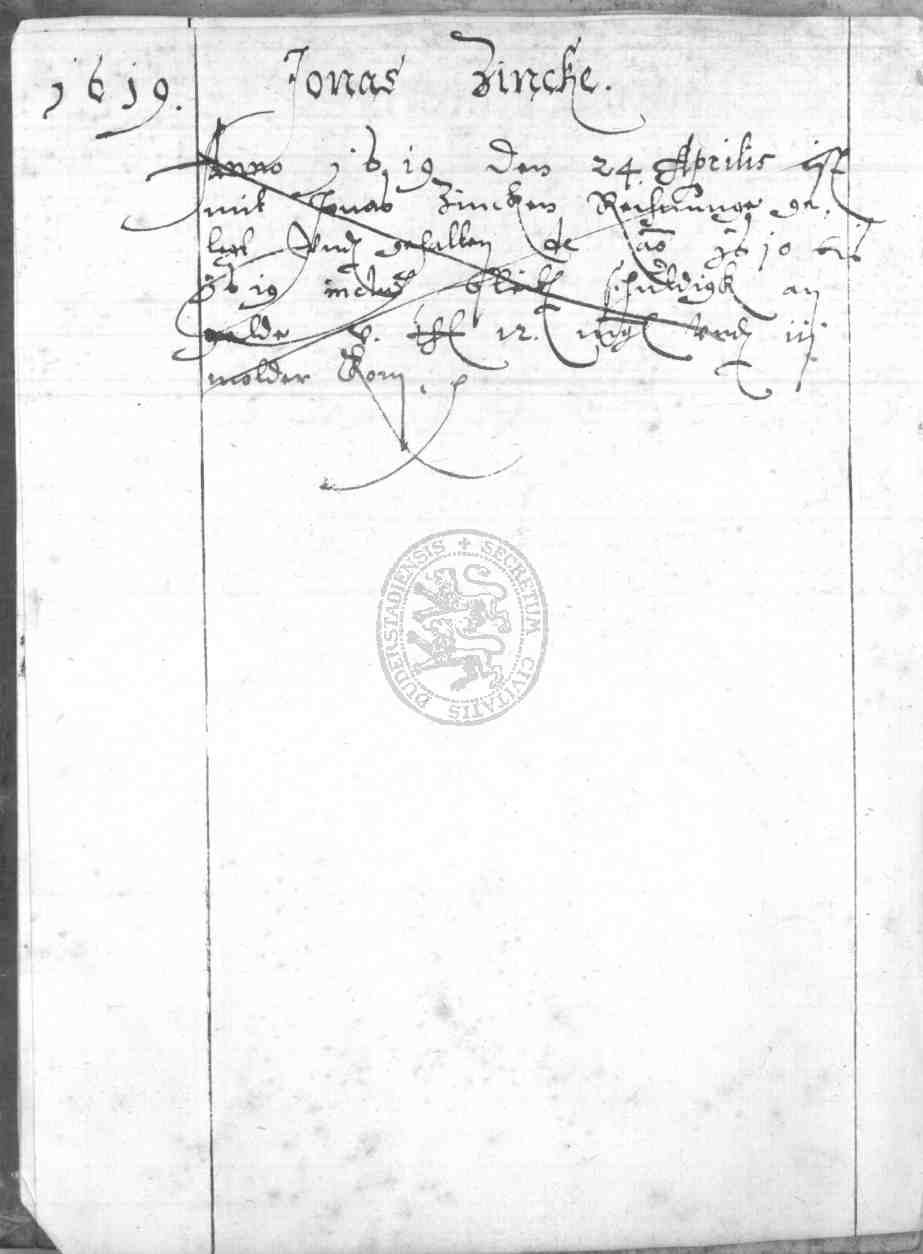 1619.
Jonas Zincke.
Anno 1619 den 24. Aprilis ist
mit Jonas Zincken Rechnunge ge-
legt vnd gehalten de aō 1610 bis
1619 inclus. bleibt schuldigk an
gelde v. 12. vnd iij
molder Korn.
DUDERSTADIENSIS + SECRETUM CIVITATIS